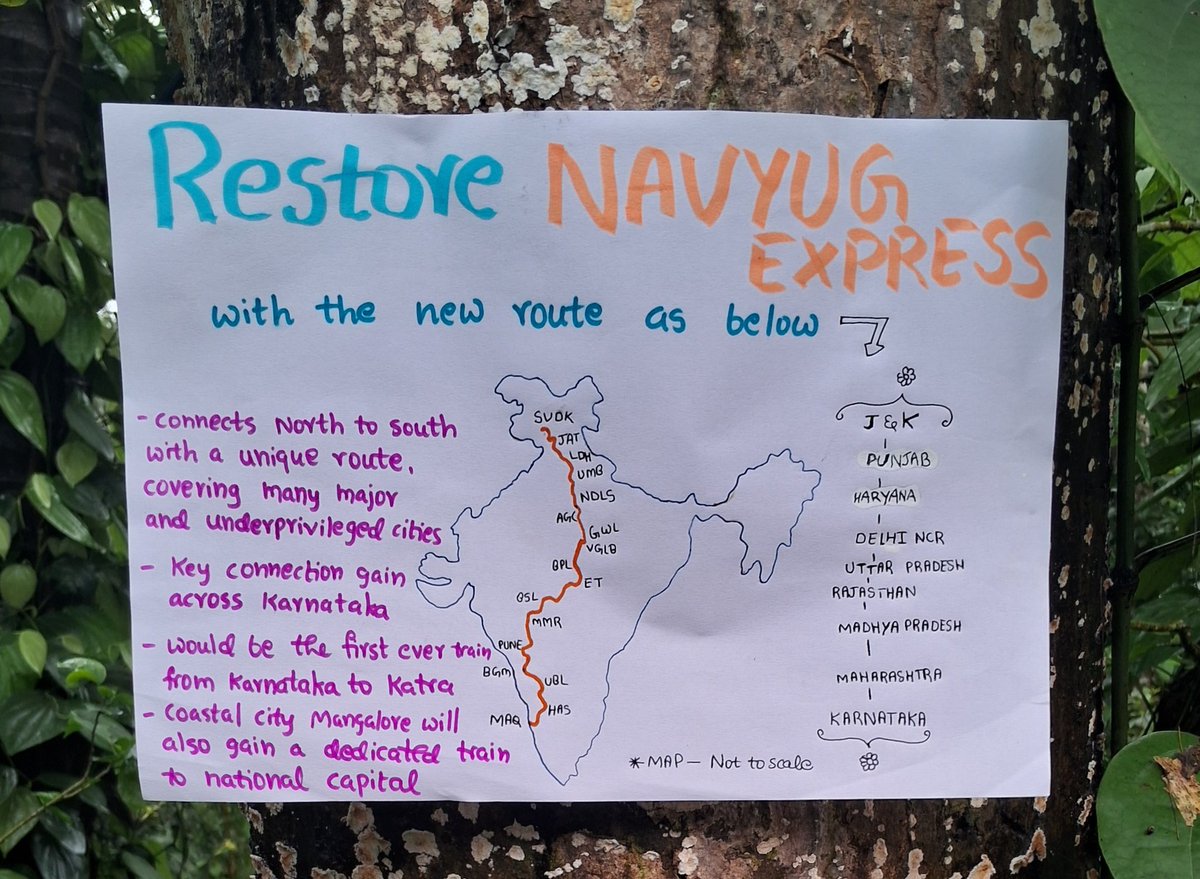 Restore NAVYUG
EXPRESS
with the new route as below
- connects North to south
with a unique route,
covering many major
and underprivileged cities
- Key connection gain
across Karnataka
- would be the first ever train
from Karnataka to Katra
- Coastal city Mangalore will
also gain a dedicated train
to national capital
SVDK
JAT
LDH
UMB
NDLS
AGC
GWL
VGLB
BPL
ET
BSL
MMR
PUNE
BGM
UBL
HAS
MAQ
* MAP - Not to scale
J & K
PUNJAB
HARYANA
DELHI NCR
UTTAR PRADESH
RAJASTHAN
MADHYA PRADESH
MAHARASHTRA
KARNATAKA